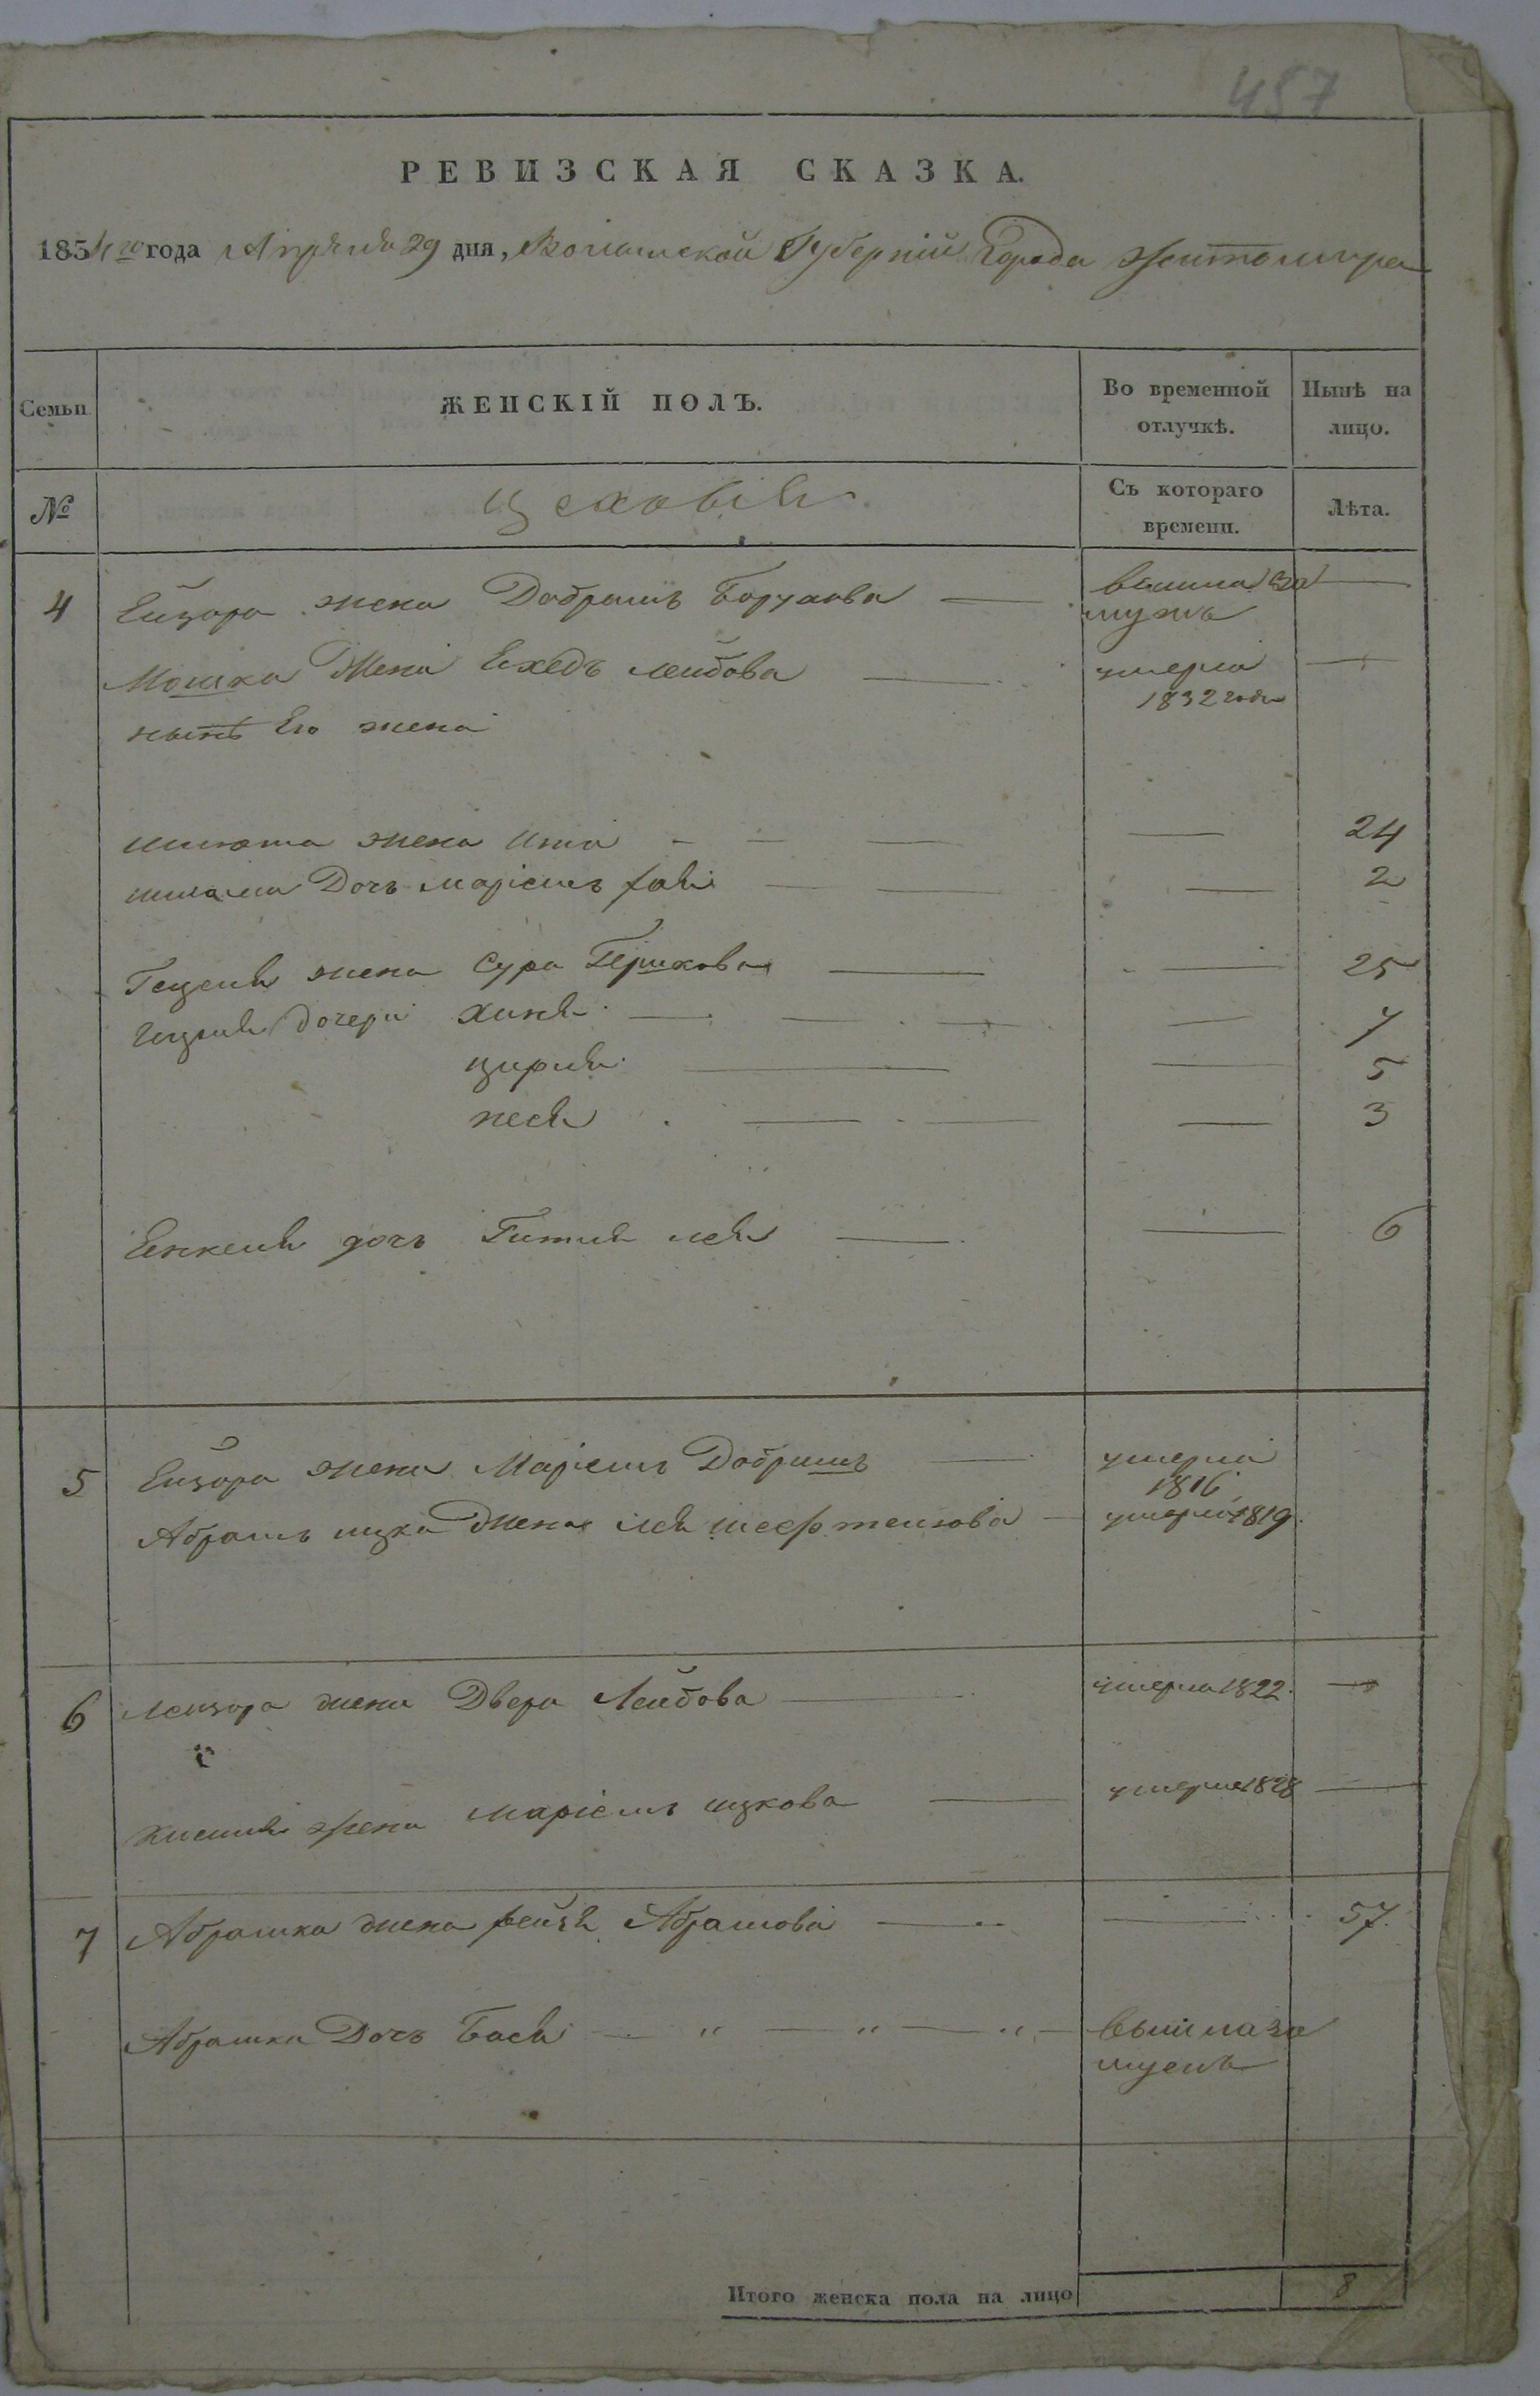 457
РЕВИЗСКАЯ СКАЗКА.
1834го года Апреля 29 дня, Волынской Губерніи Города Житомира
Семьи
ЖЕНСКІЙ ПОЛЪ.
Во временной отлучкѣ.
Нынѣ на лицо.
№
Съ котораго времени.
Лѣта.
4 Ейзора жена Добрышъ Борухова — вышла за мужъ —
Мошка Жена Ехедъ Лейбова — умерла 1832 года —
нынѣ Его жена
жена — — — — 24
Дочь Маріемъ — — — 2
жена Сура Гершкова — — 25
дочери Хиня — — — — 7
Цирля — — 5
Песя — — — 3
дочь Гитля Лея — — 6
5 Ейзора жена Маріемъ Добрышъ — умерла 1816
Абрамъ Ицка жена Лея — умерла 1819.
6 Лейзора жена Двера Лейбова — умерла 1822. —
жена Маріемъ Ицкова — умерла 1828 —
7 Абрашка жена Фейга Абрамова — — 57.
Абрашка Дочь Бася — " — " — " — вышла за мужъ
Итого женска пола на лицо 8